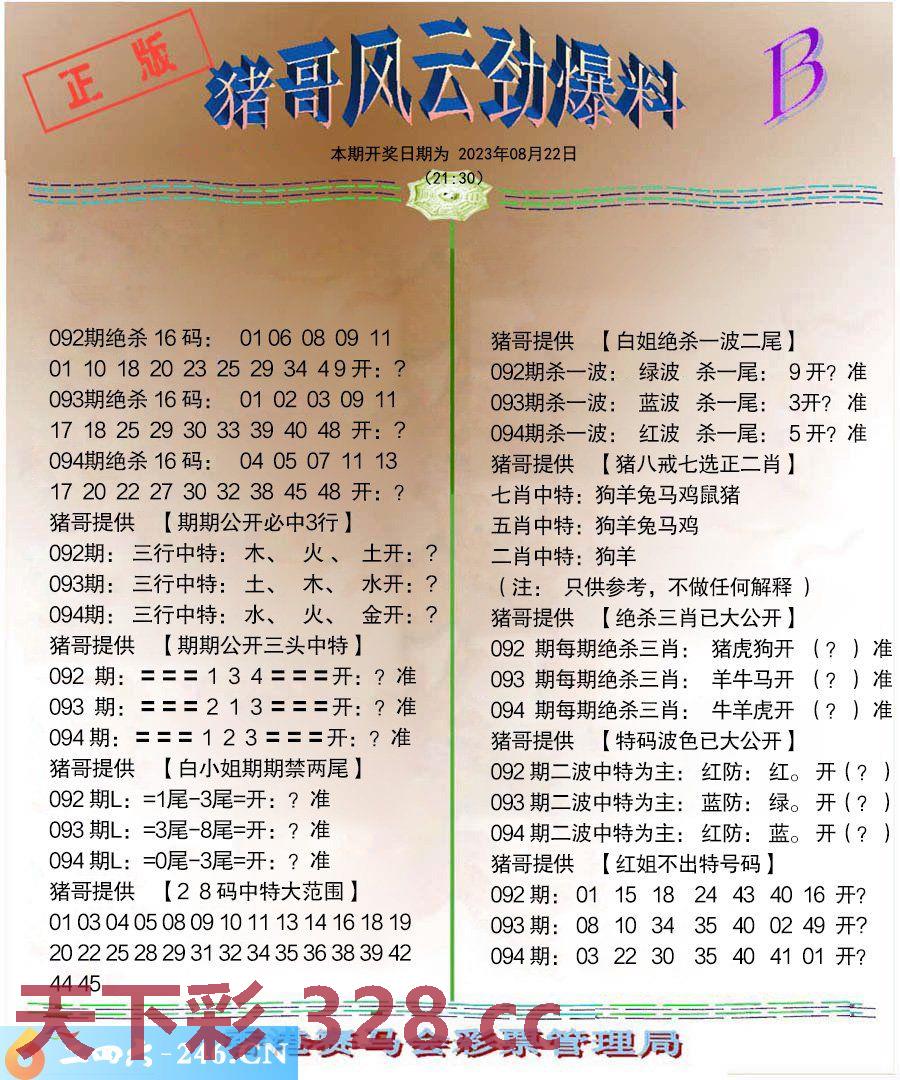 正版
猪哥风云劲爆料
B
本期开奖日期为 2023年08月22日
(21:30)
092期绝杀 16 码： 01 06 08 09 11
01 10 18 20 23 25 29 34 4 9 开：?
093期绝杀 16 码： 01 02 03 09 11
17 18 25 29 30 33 39 40 48 开：?
094期绝杀 16 码： 04 05 07 11 13
17 20 22 27 30 32 38 45 48 开：?
猪哥提供 【期期公开必中3行】
092期： 三行中特： 木、 火 、 土开：?
093期： 三行中特： 土、 木、 水开：?
094期： 三行中特： 水、 火、 金开：?
猪哥提供 【期期公开三头中特】
092 期：===１３４===开：? 准
093 期：===２１３===开：? 准
094 期：===１２３===开：? 准
猪哥提供 【白小姐期期禁两尾】
092 期L：=1尾-3尾=开：? 准
093 期L：=3尾-8尾=开：? 准
094 期L：=0尾-3尾=开：? 准
猪哥提供 【２８码中特大范围】
01 03 04 05 08 09 10 11 13 14 16 18 19
20 22 25 28 29 31 32 34 35 36 38 39 42
44 45
猪哥提供 【白姐绝杀一波二尾】
092期杀一波： 绿波 杀一尾： 9 开? 准
093期杀一波： 蓝波 杀一尾： 3开? 准
094期杀一波： 红波 杀一尾： 5 开? 准
猪哥提供 【猪八戒七选正二肖】
七肖中特：狗羊兔马鸡鼠猪
五肖中特：狗羊兔马鸡
二肖中特：狗羊
（注： 只供参考，不做任何解释 ）
猪哥提供 【绝杀三肖已大公开】
092 期每期绝杀三肖： 猪虎狗开 （? ）准
093 期每期绝杀三肖： 羊牛马开 （? ）准
094 期每期绝杀三肖： 牛羊虎开 （? ）准
猪哥提供 【特码波色已大公开】
092 期二波中特为主：红防：红。开（? ）
093 期二波中特为主：蓝防：绿。开（? ）
094 期二波中特为主：红防：蓝。开（? ）
猪哥提供 【红姐不出特号码】
092 期： 01 15 18 24 43 40 16 开?
093 期： 08 10 34 35 40 02 49 开?
094 期： 03 22 30 35 40 41 01 开?
天下彩 328.cc
-246.CN
赛马会彩票管理局